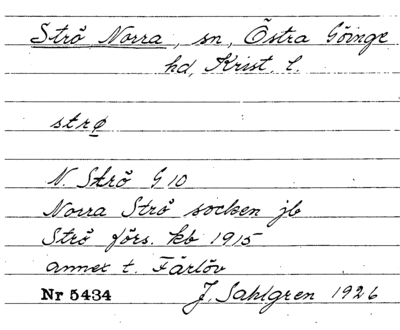 Strö Norra, sn, Östra Göinge
hd, Krist. l.
strø
N. Strö G 10
Norra Strö socken jb
Strö förs. kb 1915
annex t. Färlöv
Nr 5434 J. Sahlgren 1926